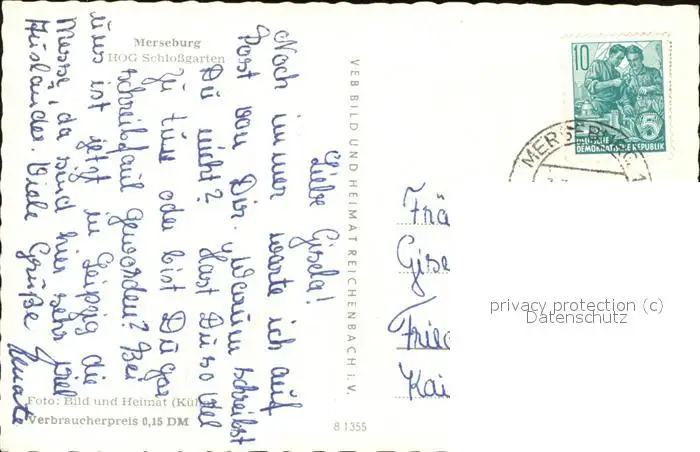 Merseburg
HOG Schloßgarten
Liebe Gisela!
Noch immer warte ich auf
Post von Dir. Warum schreibst
Du nicht? Hast Du so viel
zu tun oder bist Du gar
schreibfaul geworden? Bei
uns ist jetzt in Leipzig die
Messe, da sind hier sehr viel
Ausländer. Viele Grüße
Renate
Foto: Bild und Heimat
Verbraucherpreis 0,15 DM
VEB BILD UND HEIMAT REICHENBACH i. V.
8 1355
10
5
DEUTSCHE
DEMOKRATISCHE REPUBLIK
MERSEBURG 1
Frä
Gise
Fried
Kai
privacy protection (c)
Datenschutz